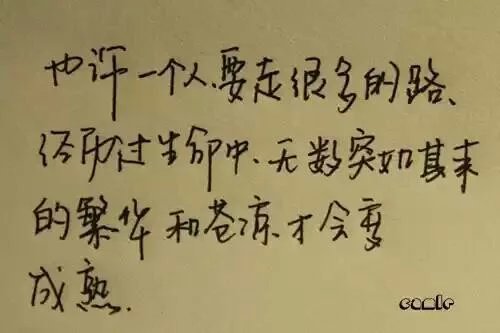 也许一个人要走很多的路、
经历过生命中、无数突如其来
的繁华和苍凉.才会变
成熟.